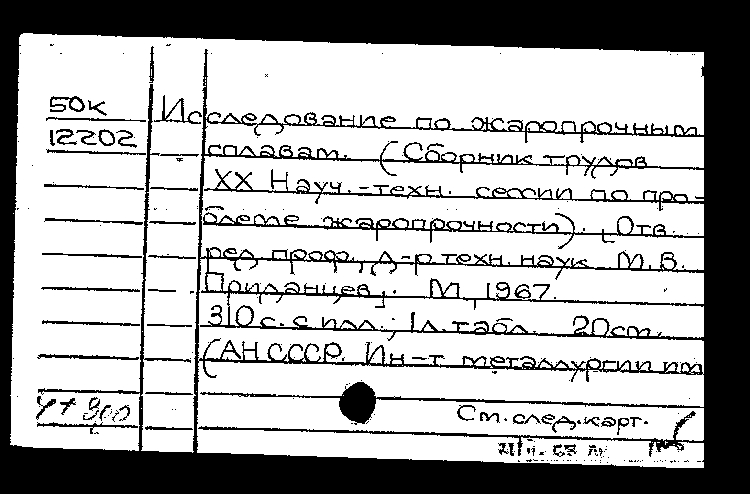 50К
12202
Исследование по жаропрочным
сплавам. (Сборник трудов
XX Науч.-техн. сессии по про-
блеме жаропрочности). [Отв.
ред. проф., д-р техн. наук М.В.
Приданцев]. М., 1967.
310 с. с илл.; 1 л. табл. 20 см.
(АН СССР. Ин-т металлургии им
Ст. след. карт.